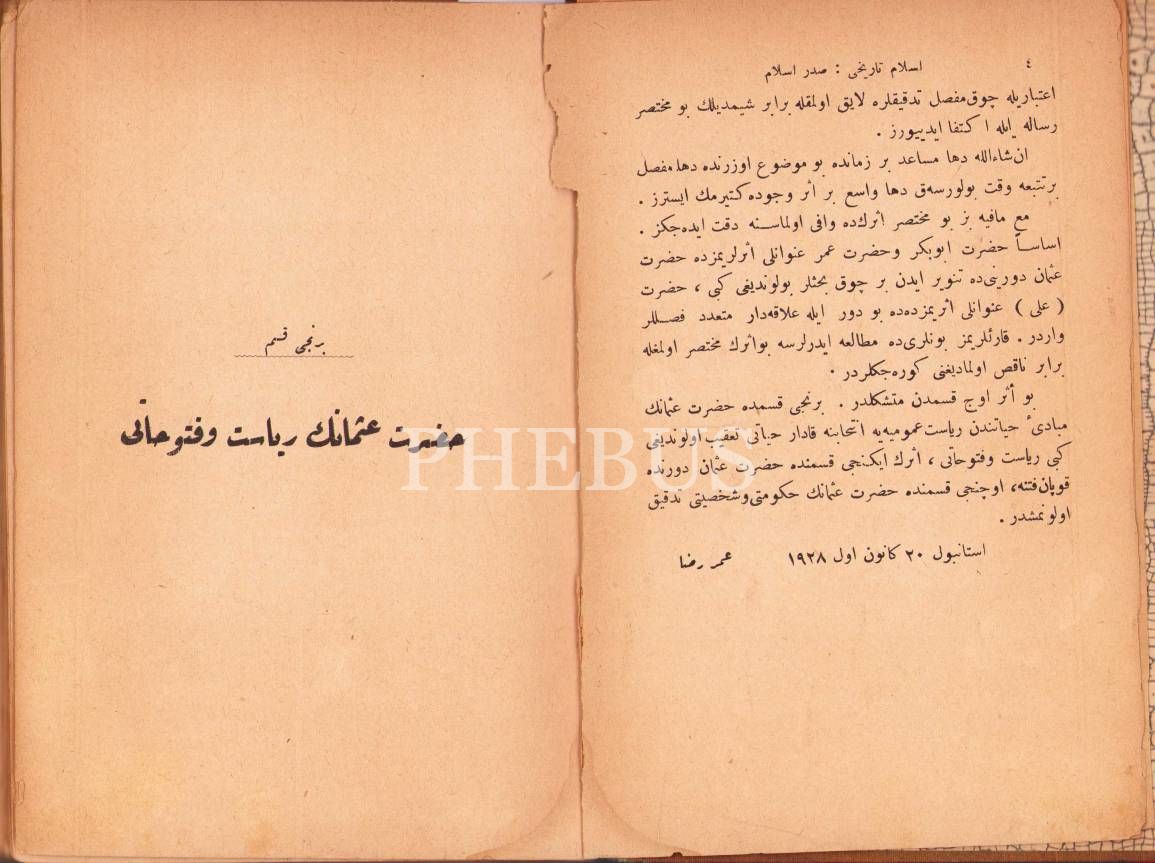 ٤
اسلام تاريخى : صدر اسلام
اعتباريله چوق مفصل تدقيقلره لايق اولمقله برابر شيمديلك بو مختصر
رساله ايله اكتفا ايدييورز .
ان شاءالله دها مساعد بر زمانده بو موضوع اوزرنده دها مفصل
بر تتبعه وقت بولورسەق دها واسع بر أثر وجوده كتيرمك ايسترز .
مع مافيه بز بو مختصر أثرك ده وافى اولماسنه دقت ايده جكز .
اساساً حضرت ابوبكر وحضرت عمر عنوانلى أثرلريمزده حضرت
عثمان دورينى ده تنوير ايدن بر چوق بحثلر بولونديغى كبى ، حضرت
( على ) عنوانلى أثريمزده ده بو دور ايله علاقه دار متعدد فصللر
واردر . قارئلريمز بونلرى ده مطالعه ايدرلرسه بو أثرك مختصر اولمغله
برابر ناقص اولماديغنى كوره جكلردر .
بو أثر اوچ قسمدن متشكلدر . برنجى قسمده حضرت عثمانك
مبادئ حياتندن رياست عموميه يه انتخابنه قادار حياتى تعقيب اولونديغى
كبى رياست وفتوحاتى ، أثرك ايكنجى قسمنده حضرت عثمان دورنده
قوپان فتنه، اوچنجى قسمنده حضرت عثمانك حكومتى وشخصيتى تدقيق
اولونمشدر .
استانبول ٢٠ كانون اول ١٩٢٨ عمر رضا
برنجى قسم
حضرت عثمانك رياست وفتوحاتى
PHEBUS